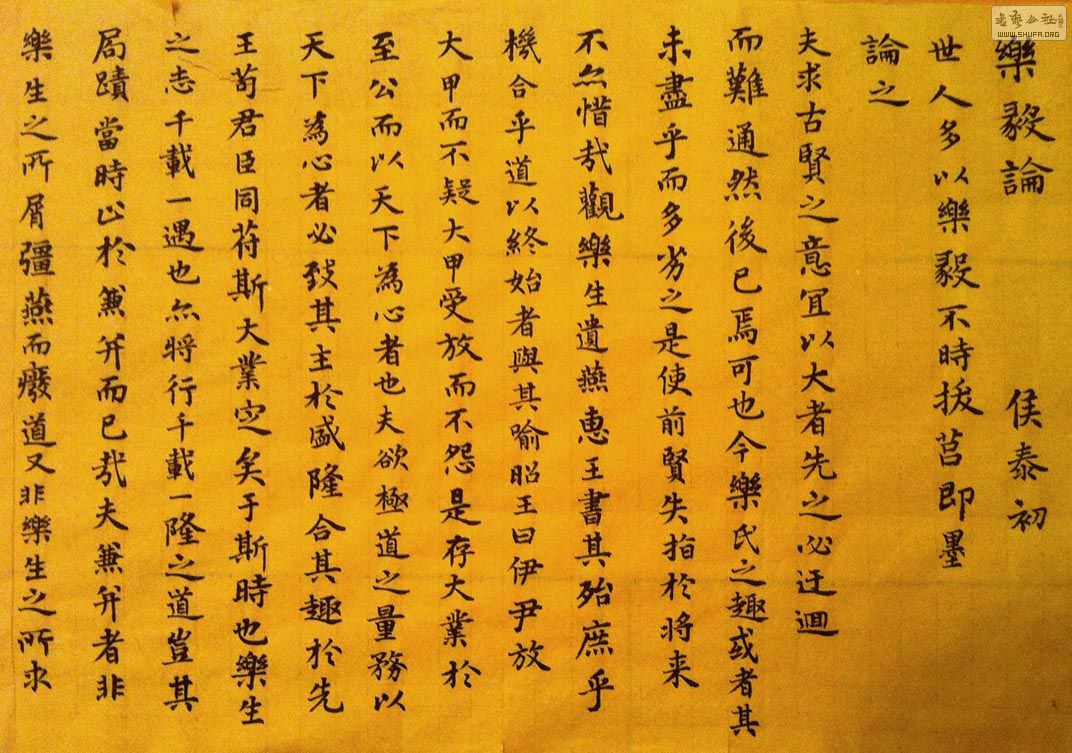 樂毅論 侯泰初
世人多以樂毅不時拔莒即墨
論之
夫求古賢之意冝以大者先之必迂迴
而難通然後已焉可也今樂氏之趣或者其
未盡乎而多劣之是使前賢失指於將来
不尒惜哉觀樂生遺燕惠王書其殆庶乎
機合乎道以終始者與其喻昭王曰伊尹放
大甲而不疑大甲受放而不怨是存大業於
至公而以天下為心者也夫欲極道之量務以
天下為心者必致其主於盛隆合其趣於先
王苟君臣同苻斯大業定矣于斯時也樂生
之志千載一遇也尒將行千載一隆之道豈其
局蹟當時止於蒹并而已哉夫蒹并者非
樂生之所屑彊燕而癈道又非樂生之所求
WWW.SHUFA.ORG